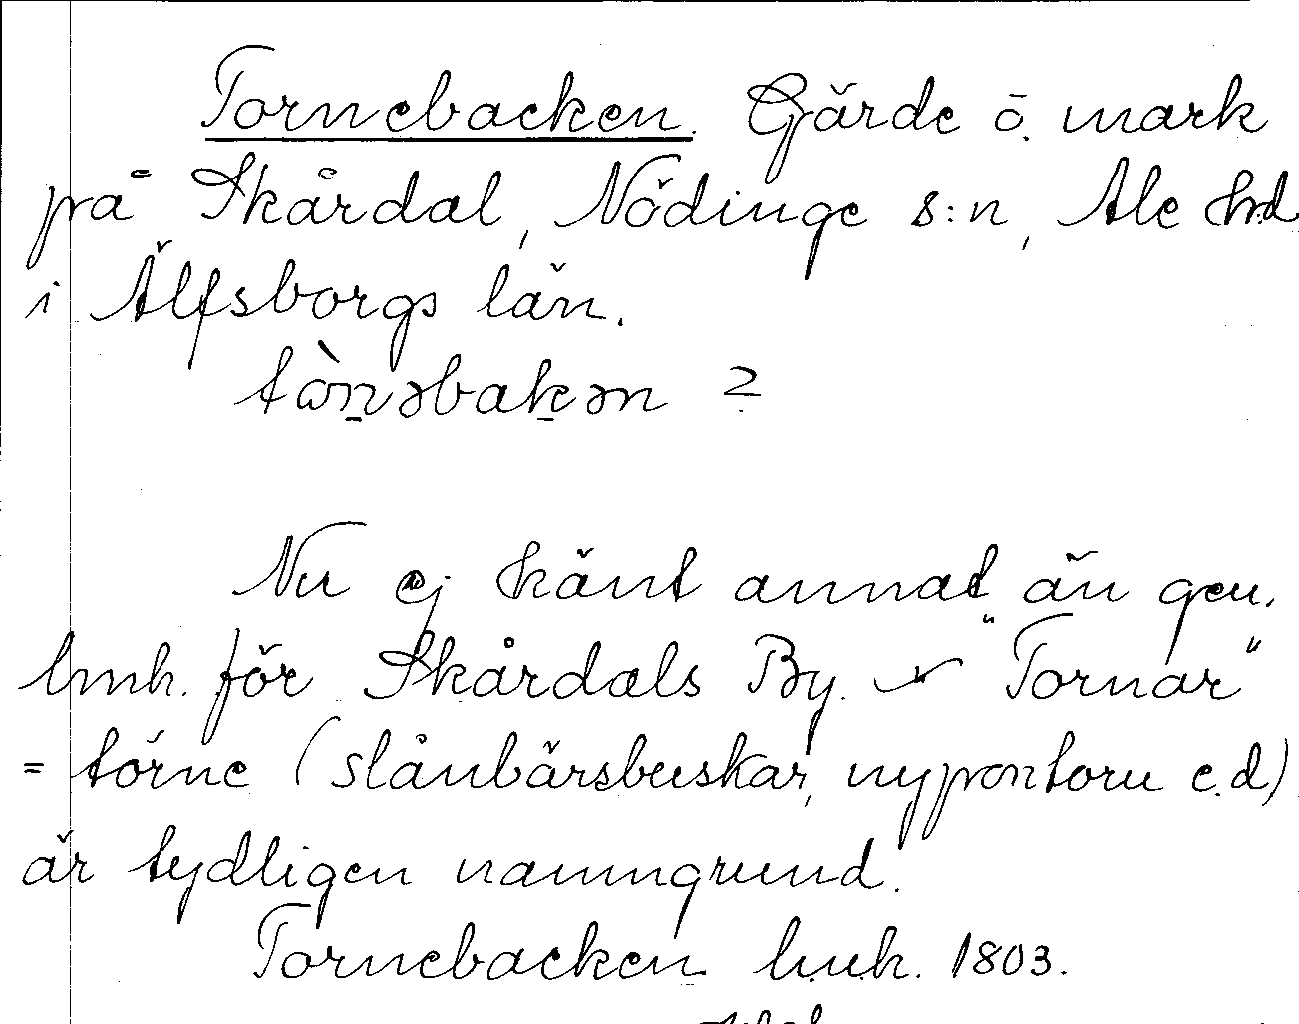 Tornebacken. Gärde ō. mark
på Skårdal, Nödinge s:n, Ale hd
i Älfsborgs län.
tòn̠əbak̠ən ?
Nu ej känt annat än gen.
lmh. för Skårdals By. "Tornar"
= törne (slånbärsbuskar, nypontorn e.d)
är tydligen namngrund.
Tornebacken lmh. 1803.